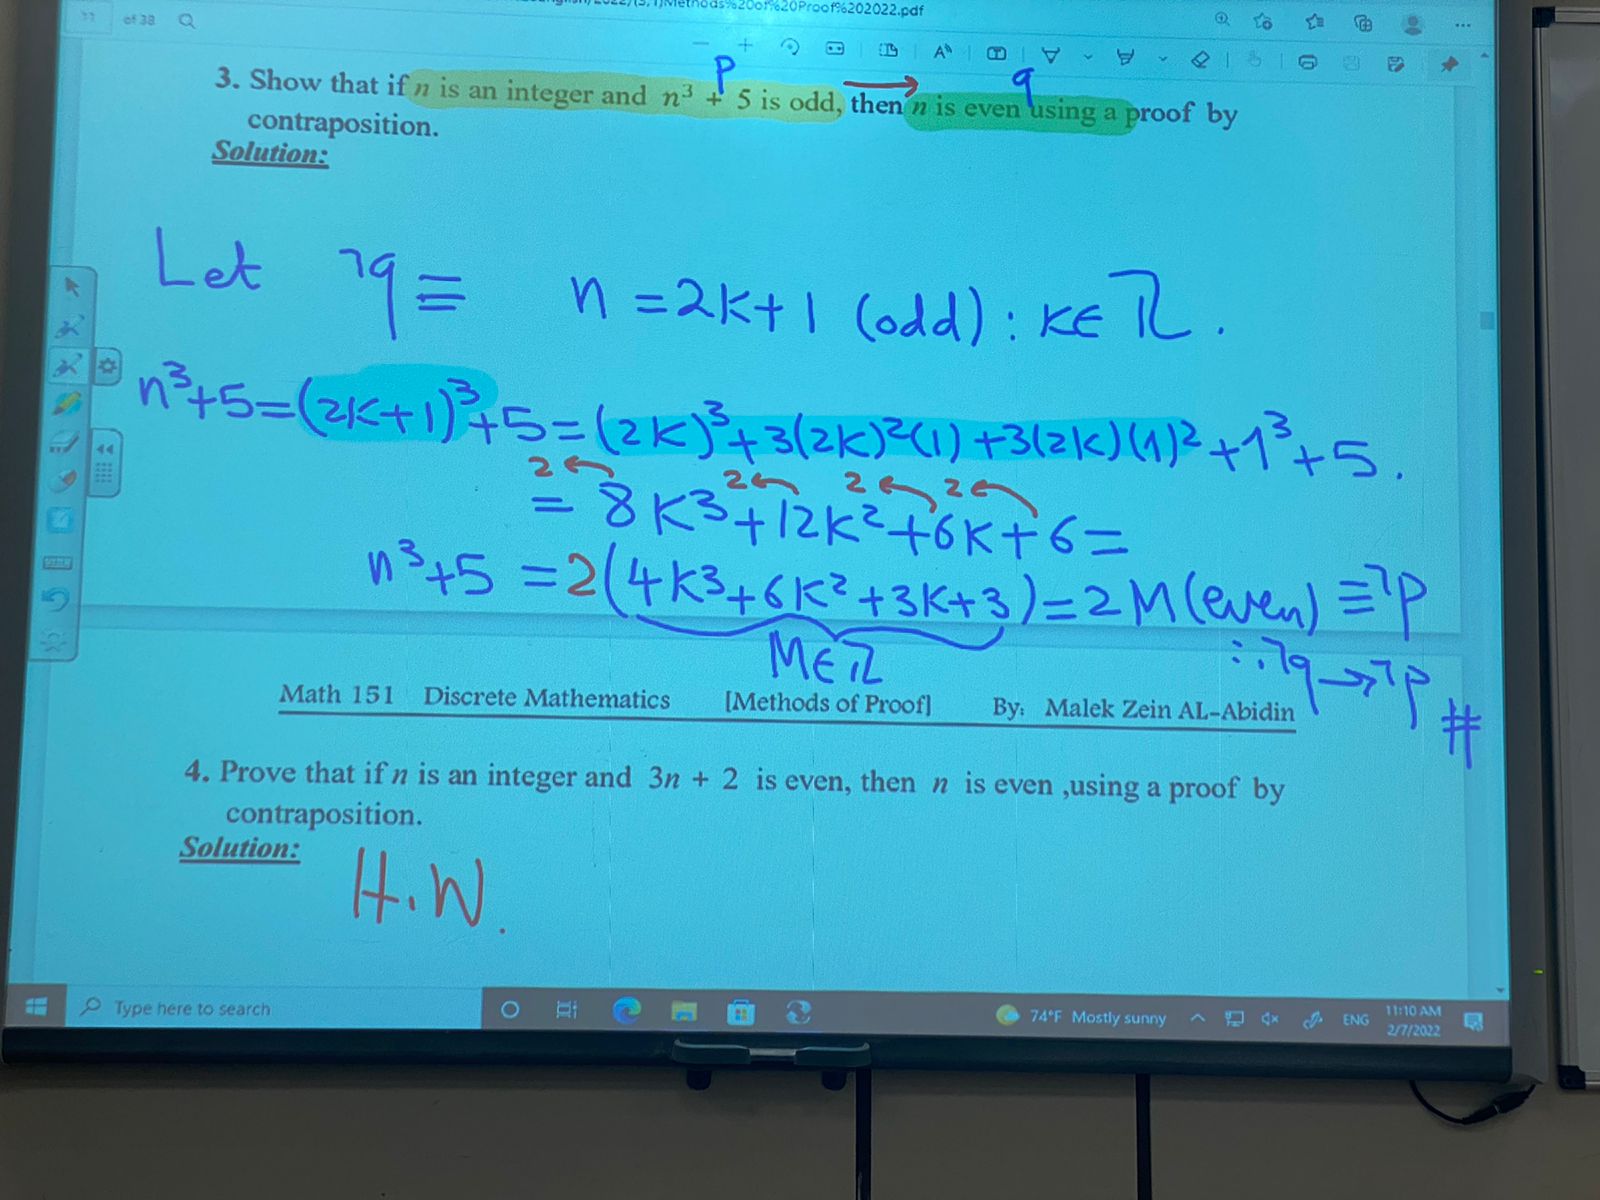 of 38
3. Show that if n is an integer and n³ + 5 is odd, then n is even using a proof by
p
q
contraposition.
Solution:
Let ¬q ≡ n = 2k+1 (odd) : k∈ℤ.
n³+5=(2k+1)³+5=(2k)³+3(2k)²(1)+3(2k)(1)²+1³+5.
2 2 2 2
= 8k³+12k²+6k+6=
n³+5 =2(4k³+6k²+3k+3)=2M(even) ≡¬p
M∈ℤ
∴¬q→¬p #
Math 151 Discrete Mathematics [Methods of Proof] By: Malek Zein AL-Abidin
4. Prove that if n is an integer and 3n + 2 is even, then n is even ,using a proof by
contraposition.
Solution:
H.W.
Type here to search
74°F Mostly sunny
ENG
11:10 AM
2/7/2022